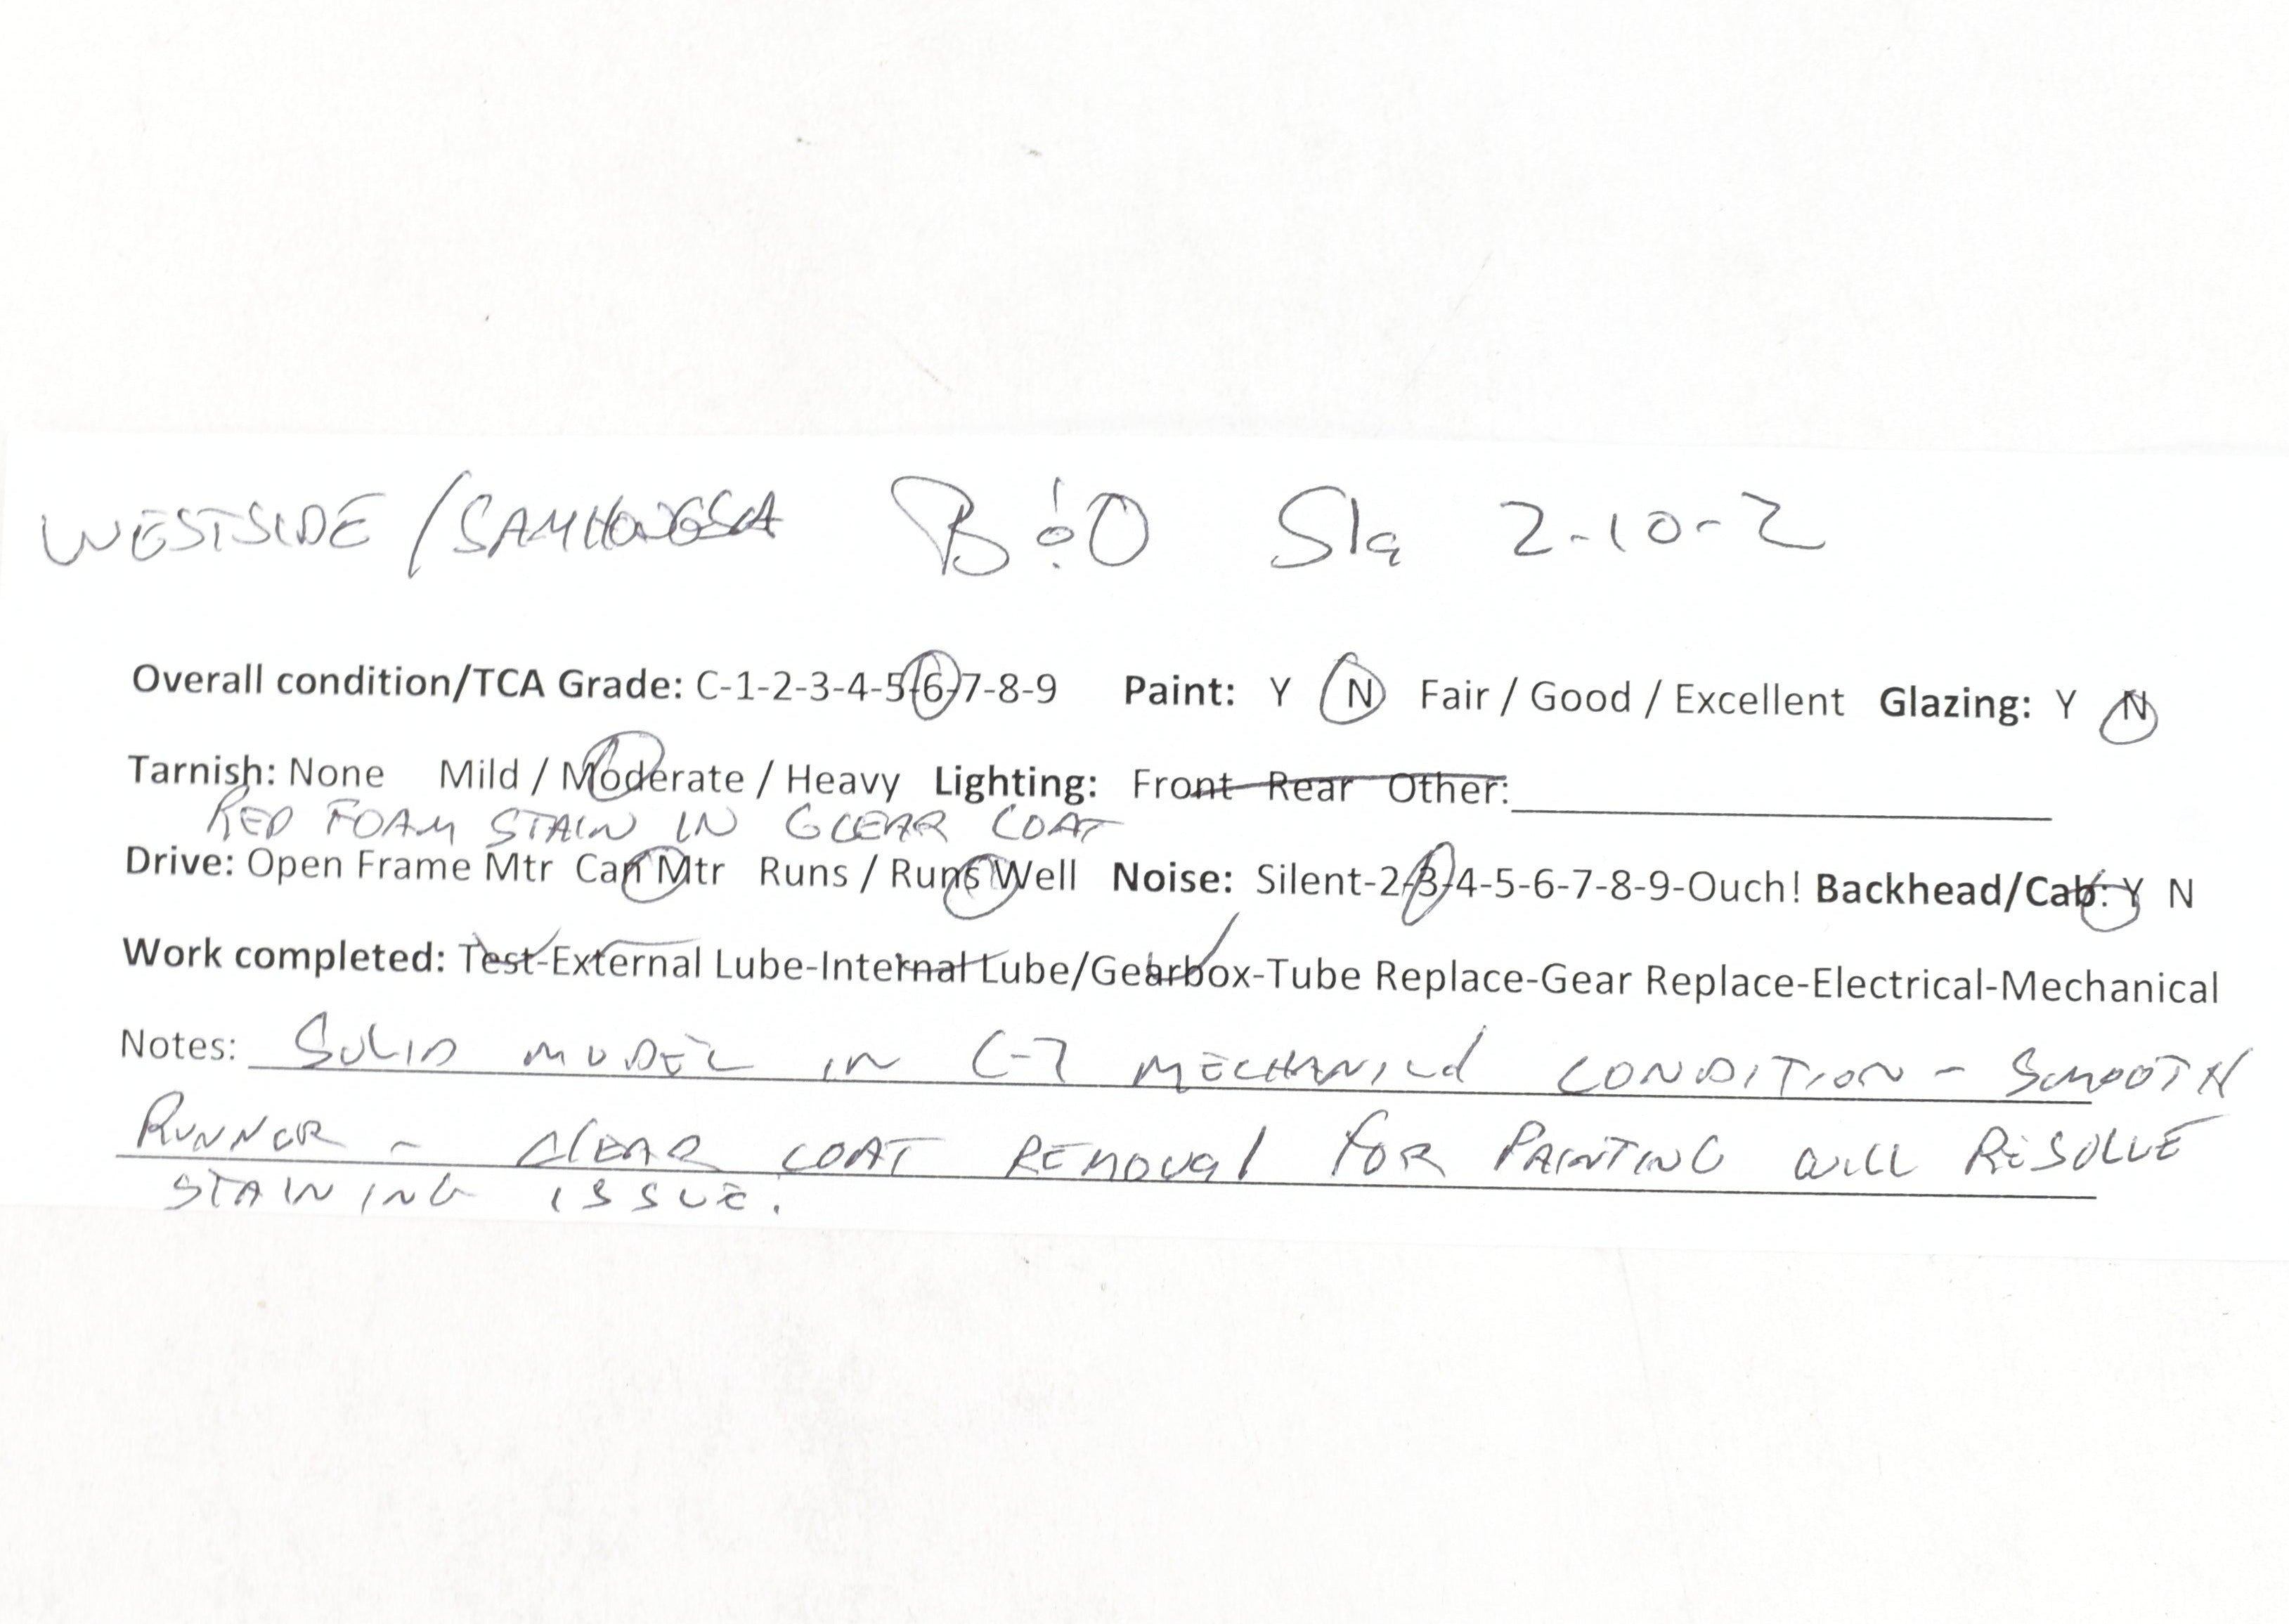 WESTSIDE / SAMHONGSA B & O S1a 2-10-2
Overall condition/TCA Grade: C-1-2-3-4-5-6-7-8-9 Paint: Y N Fair / Good / Excellent Glazing: Y N
Tarnish: None Mild / Moderate / Heavy Lighting: Front Rear Other:
RED FOAM STAIN IN CLEAR COAT
Drive: Open Frame Mtr Can Mtr Runs / Runs Well Noise: Silent-2-3-4-5-6-7-8-9-Ouch! Backhead/Cab: Y N
Work completed: Test-External Lube-Internal Lube/Gearbox-Tube Replace-Gear Replace-Electrical-Mechanical
Notes: SOLID MODEL IN C-7 MECHANICAL CONDITION - SMOOTH
RUNNER - CLEAR COAT REMOVAL FOR PAINTING WILL RESOLVE
STAINING ISSUE.